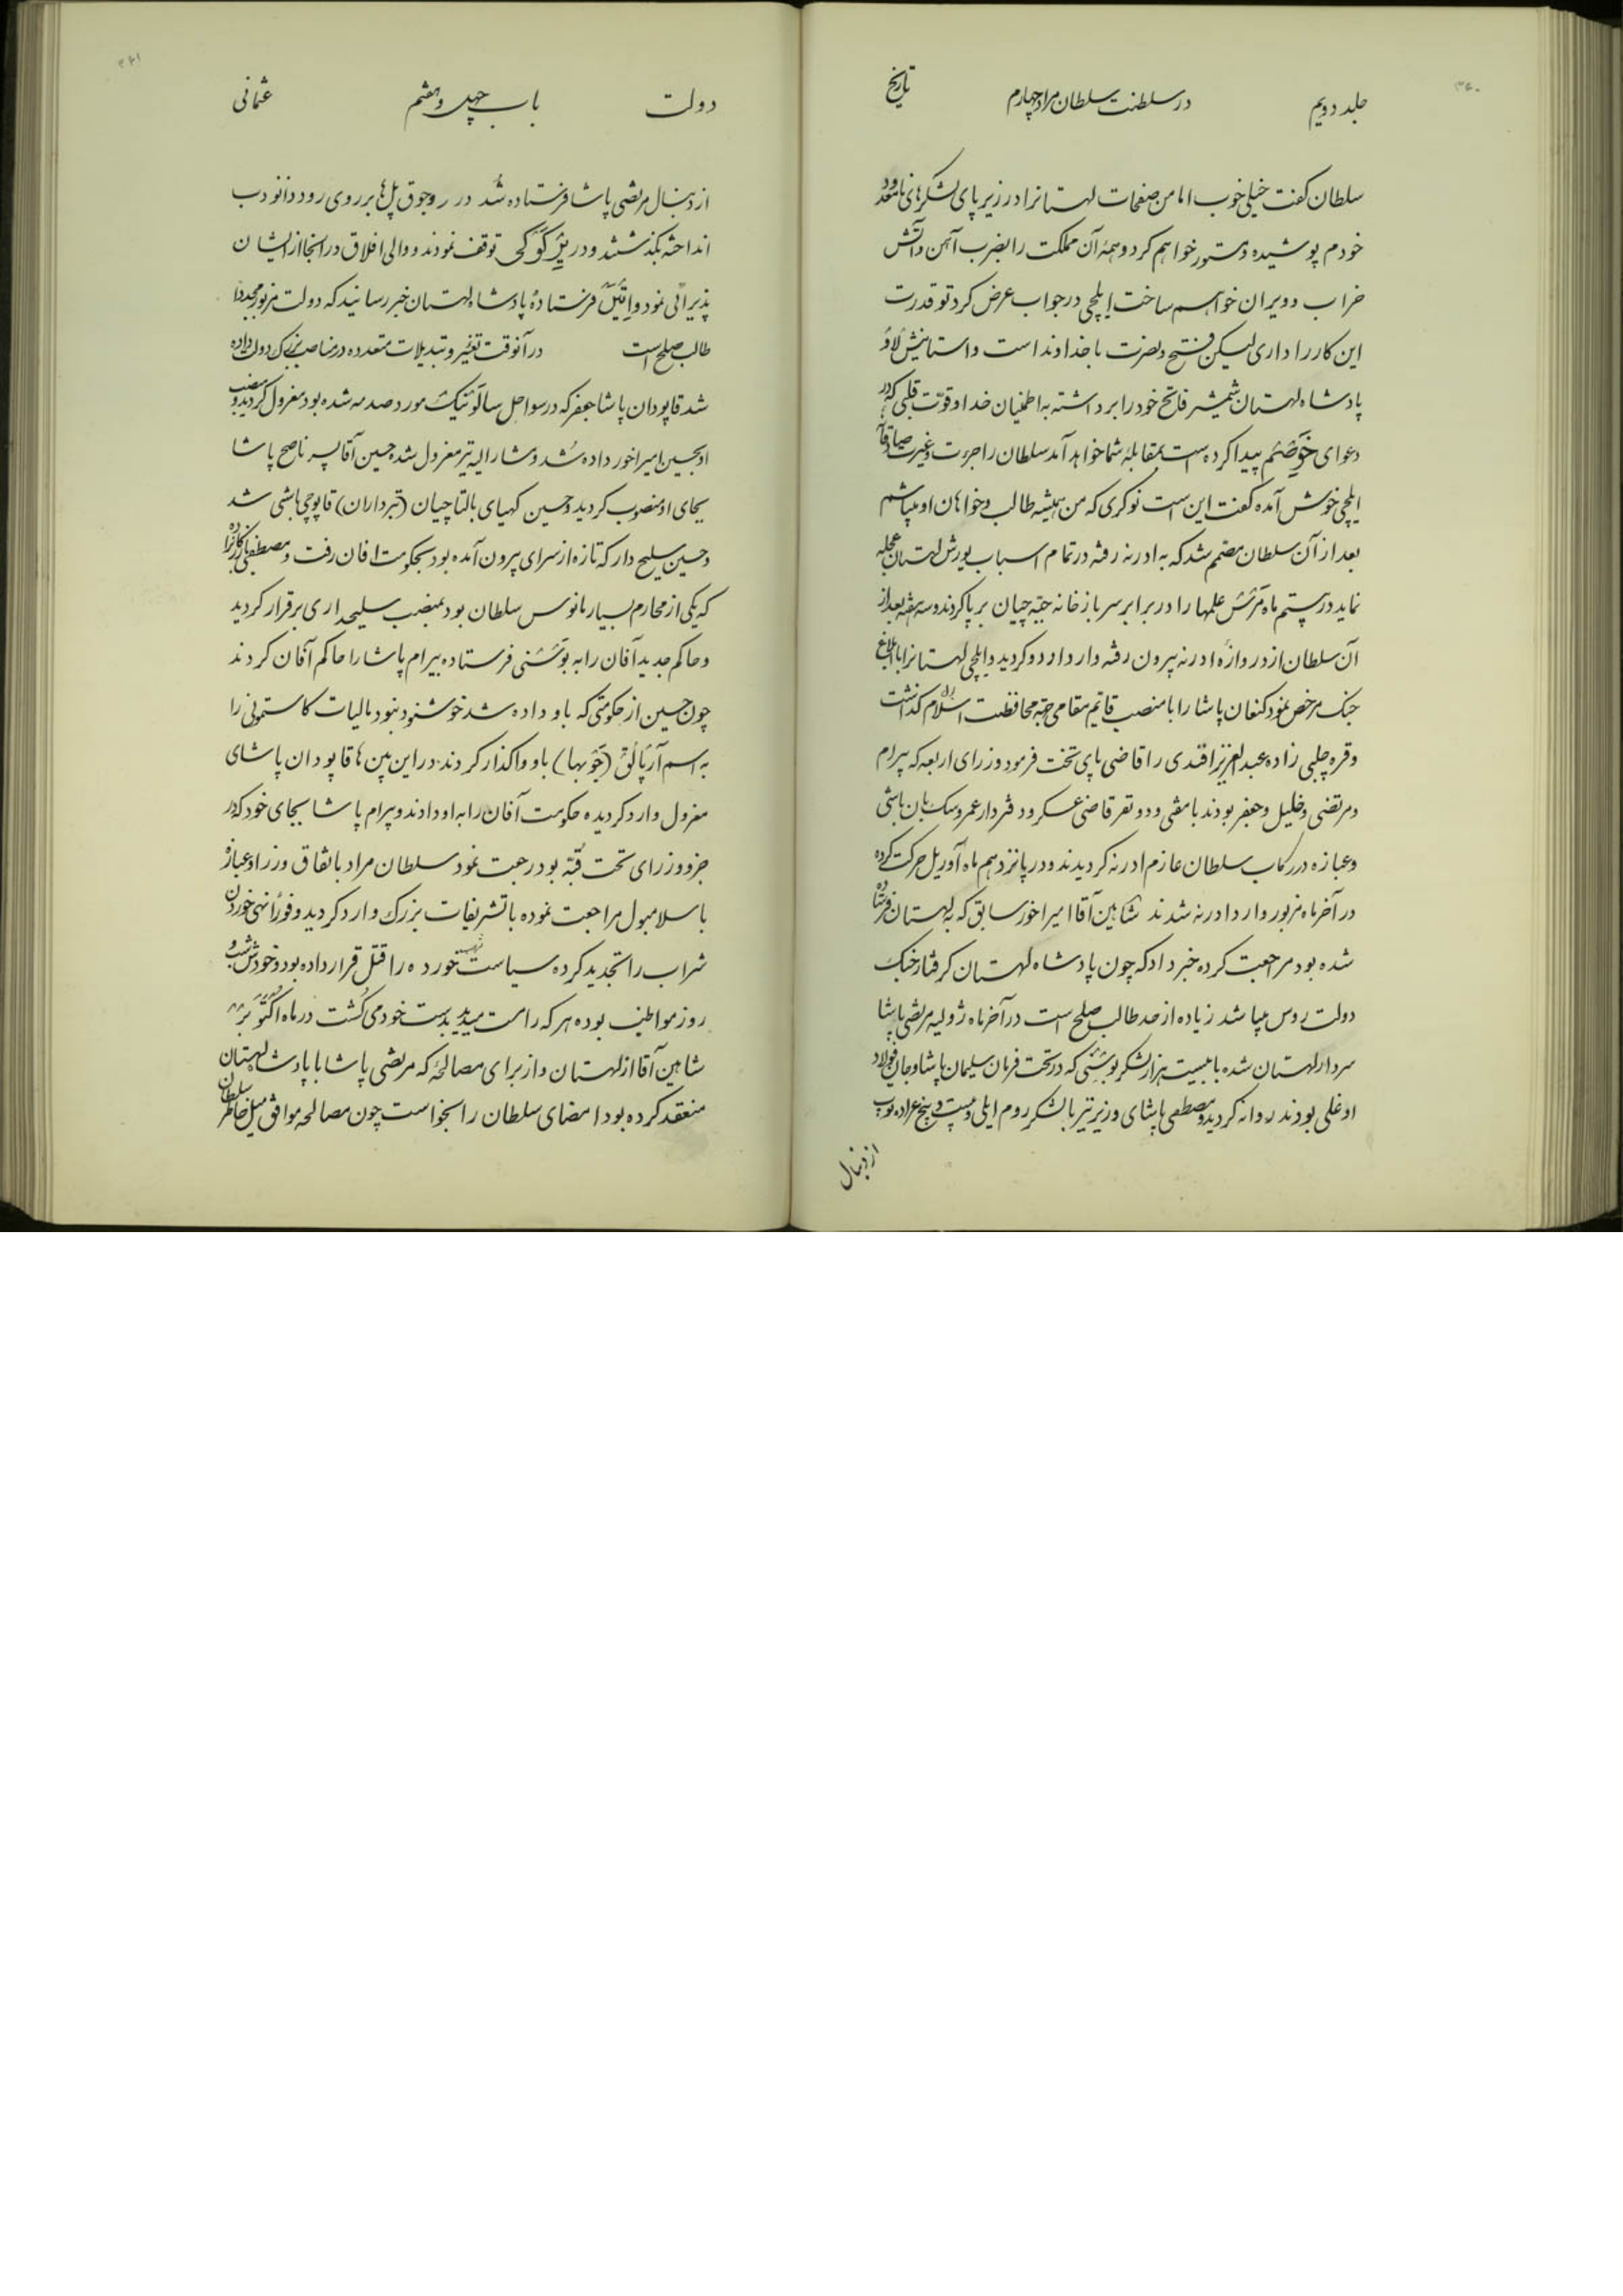 ۳۶۰
جلد دویم
در سلطنت سلطان مراد چهارم
تاریخ
سلطان کفت خیلی خوب اما من صفحات لهستانرا در زیر پای لشکرهای نامعدود
خودم پوشیده و مستور خواهم کرد و همهٔ آن مملکت را بضرب آهن و آتش
خراب و ویران خواهم ساخت ایلچی در جواب عرض کرد تو قدرت
این کار را داری لیکن فتح و نصرت با خداوند است و استانیش لاؤ
پادشاه لهستان شمشیر فاتح خود را برداشته به اطمینان خدا و قوّت قلبی که در
دعوای خوضتم پیدا کرده است بمقابلهٔ شما خواهد آمد سلطان را جرءت و غیرت صادقانهٔ
ایلچی خوش آمده کفت این است نوکری که من همیشه طالب و خواهان او میباشم
بعد از آن سلطان مصمم شد که به ادرنه رفته در تمام اسباب یورش لهستان عجله
نماید در بیستم ماه مرئش علمها را در برابر سربازخانه جبّه چیان بر پا کردند و سه هفته بعد از
آن سلطان از دروازه ادرنه بیرون رفته وارد اردو کردید و ایلچی لهستانرا با ابلاغ
جنک مرخص نمود کنعان پاشا را با منصب قایم مقامی جهة محافظت اسلامبول کذاشت
و قره چلبی زاده عبدالعزیز افندی را قاضی پای تخت فرمود وزرای اربعه که بیرام
و مرتضی و خلیل و جعفر بودند با مفتی و دو نفر قاضی عسکر و دفتردار عمر و سک بان باشی
و عبازه در رکاب سلطان عازم ادرنه کردیدند و در پانزدهم ماه آوریل حرکت کرده
در آخر ماه مزبور وارد ادرنه شدند شاهین آقا امیر اخور سابق که به لهستان فرستاده
شده بود مراجعت کرده خبر داد که چون پادشاه لهستان کرفتار جنک
دولت روس میباشد زیاده از حد طالب صلح است در آخر ماه ژولیه مرتضی پاشا
سردار لهستان شده با بیست هزار لشکر بوشنی که در تحت فرمان سلیمان پاشا و جان فولاد
اوغلی بودند روانه کردید و مصطفی پاشای وزیر نیز با لشکر روم ایلی و بیست و پنج عراده توپ
از دنبال
۳۶۱
دولت
باب چهل و هفتم
عثمانی
از دنبال مرتضی پاشا فرستاده شد در روجوق پل ها بر روی رود دانوب
انداخته بکذشتند و در توقف نمودند و والی افلاق در آنجا از ایشان
پذیرائی نمود و فرستادهٔ پادشاه لهستان خبر رسانید که دولت مزبور مجدداً
طالب صلح است در آنوقت تغییر و تبدیلات متعدده در مناصب بزرک دولت داده
شد قاپودان پاشا جعفر که در سواحل سالونیک مورد صدمه شده بود معزول کردید و منصب
او بحسین امیر اخور داده شد و مشارالیه نیز معزول شده حسین آقا پسر ناصح پاشا
بجای او منصوب کردید و حسین کهیای بالتاچیان (تبرداران) قاپوچی باشی شد
و حسین سلیح دار که تازه از سرای بیرون آمده بود بحکومت افان رفت و مصطفی
که یکی از محارم بسیار مانوس سلطان بود بمنصب سلیحداری برقرار کردید
و حاکم جدید آفان را به بوسنی فرستاده بیرام پاشا را حاکم آفان کردند
چون حسین از حکومتی که باو داده شد خوشنود نبود مالیات کاستمونی را
به اسم آرپالق (جَوبها) باو واکذار کردند در این بین ها قاپودان پاشای
معزول وارد کردیده حکومت آفان را به او دادند و بیرام پاشا بجای خود که در
جزو وزرای تحت قبّه بود رجعت نمود سلطان مراد باتفاق وزرا و عبازه
باسلامبول مراجعت نموده با تشریفات بزرک وارد کردید و فوراً نهی خوردن
شراب را تجدید کرده سیاست خورده را قتل قرار داده بود و خودش شب و
روز مواظب بوده هر که را مست میدید بدست خود می کُشت در ماه اکتوبر
شاهین آقا از لهستان و از برای مصالحهٔ که مرتضی پاشا با پادشاه لهستان
منعقد کرده بود امضای سلطان را بخواست چون مصالحه موافق میل خاطر سلطان